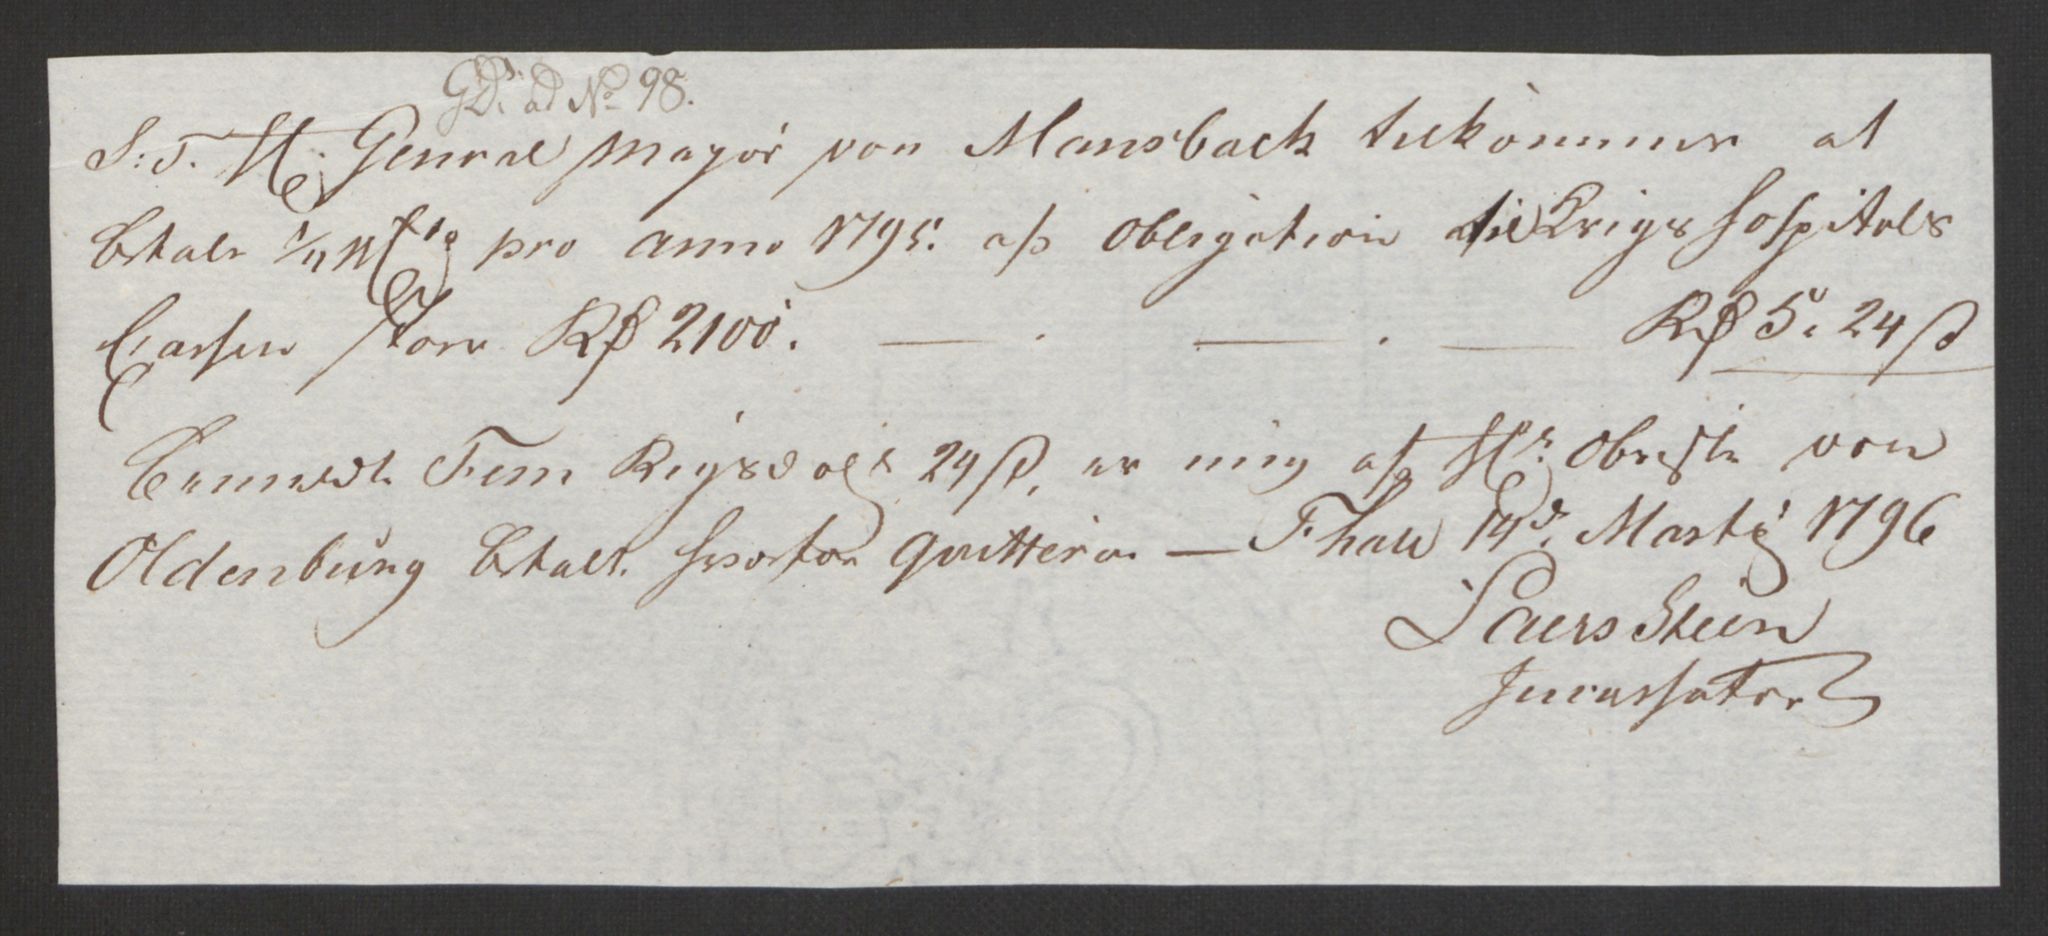 GD: ad No 98.
S: T. H: General Mayor von Mansback tilkommer at
betale 1/4 pCto pro anno 1795. af Obligation til Krigs Hospitals
Cassen stor Rd 2100. — . — . — Rd 5. 24 s
Benævnte Fem Rigsdaler 24 s, er mig af Hr. Obriste von
Oldenburg betalt hvorfor qvitteres — Fhald 14d. Martij 1796
Laers Steen